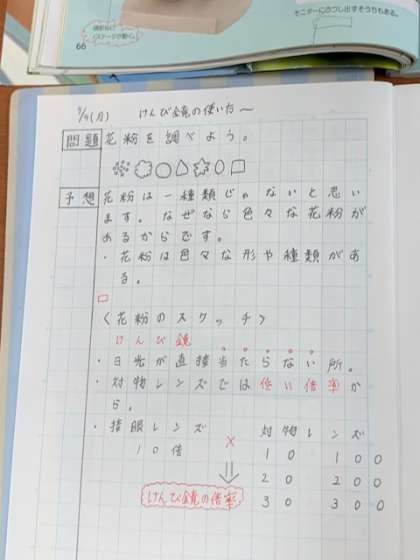 モニターにうつし出すそうちもある。
ステージが動く。
66
9/9(月) けんび鏡の使い方〜
問題 花粉を調べよう。
予想 花粉は一種類じゃないと思い
ます。なぜなら色々な花粉が
あるからです。
・花粉は色々な形や種類があ
る。
〈花粉のスケッチ〉
けんび鏡
・日光が直接当たらない所。
・対物レンズでは低い倍率か
ら。
・接眼レンズ × 対物レンズ
10倍 10 100
20 200
30 300
けんび鏡の倍率